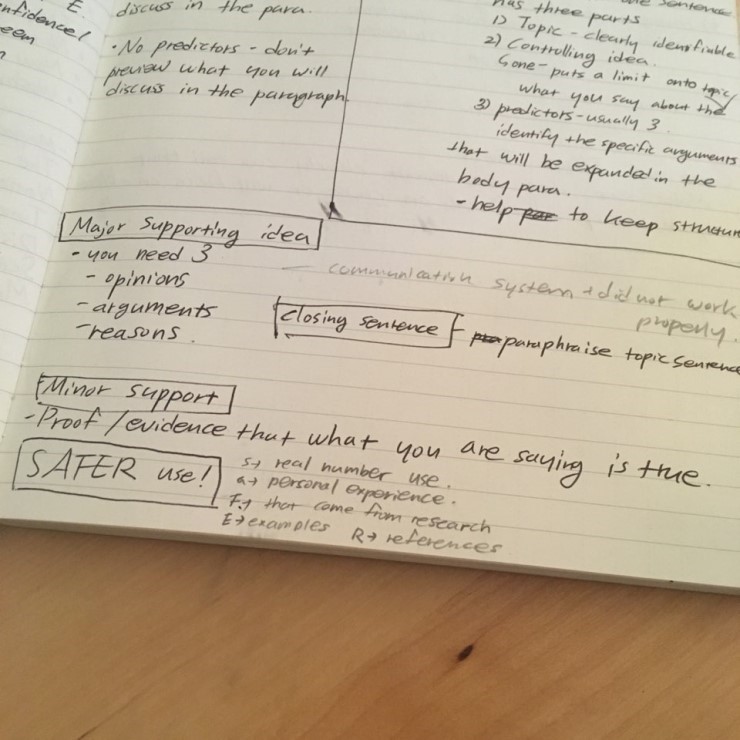 E.
nfidence!
eem
n
discuss in the para.
• No predictors - don't
preview what you will
discuss in the paragraph.
one sentence
has three parts
1) Topic - clearly identifiable
2) Controlling idea.
↳ one - puts a limit onto topic/
what you say about the
3) predictors - usually 3.
identify the specific arguments
that will be expanded in the
body para.
- help to keep structur
Major supporting idea
- you need 3
- opinions
- arguments
- reasons.
— communication system + did not work
properly.
closing sentence - paraphraise topic sentence
Minor support
- Proof / evidence that what you are saying is true.
SAFER use!
S → real number use.
a → personal experience.
F → that come from research
E → examples R → references